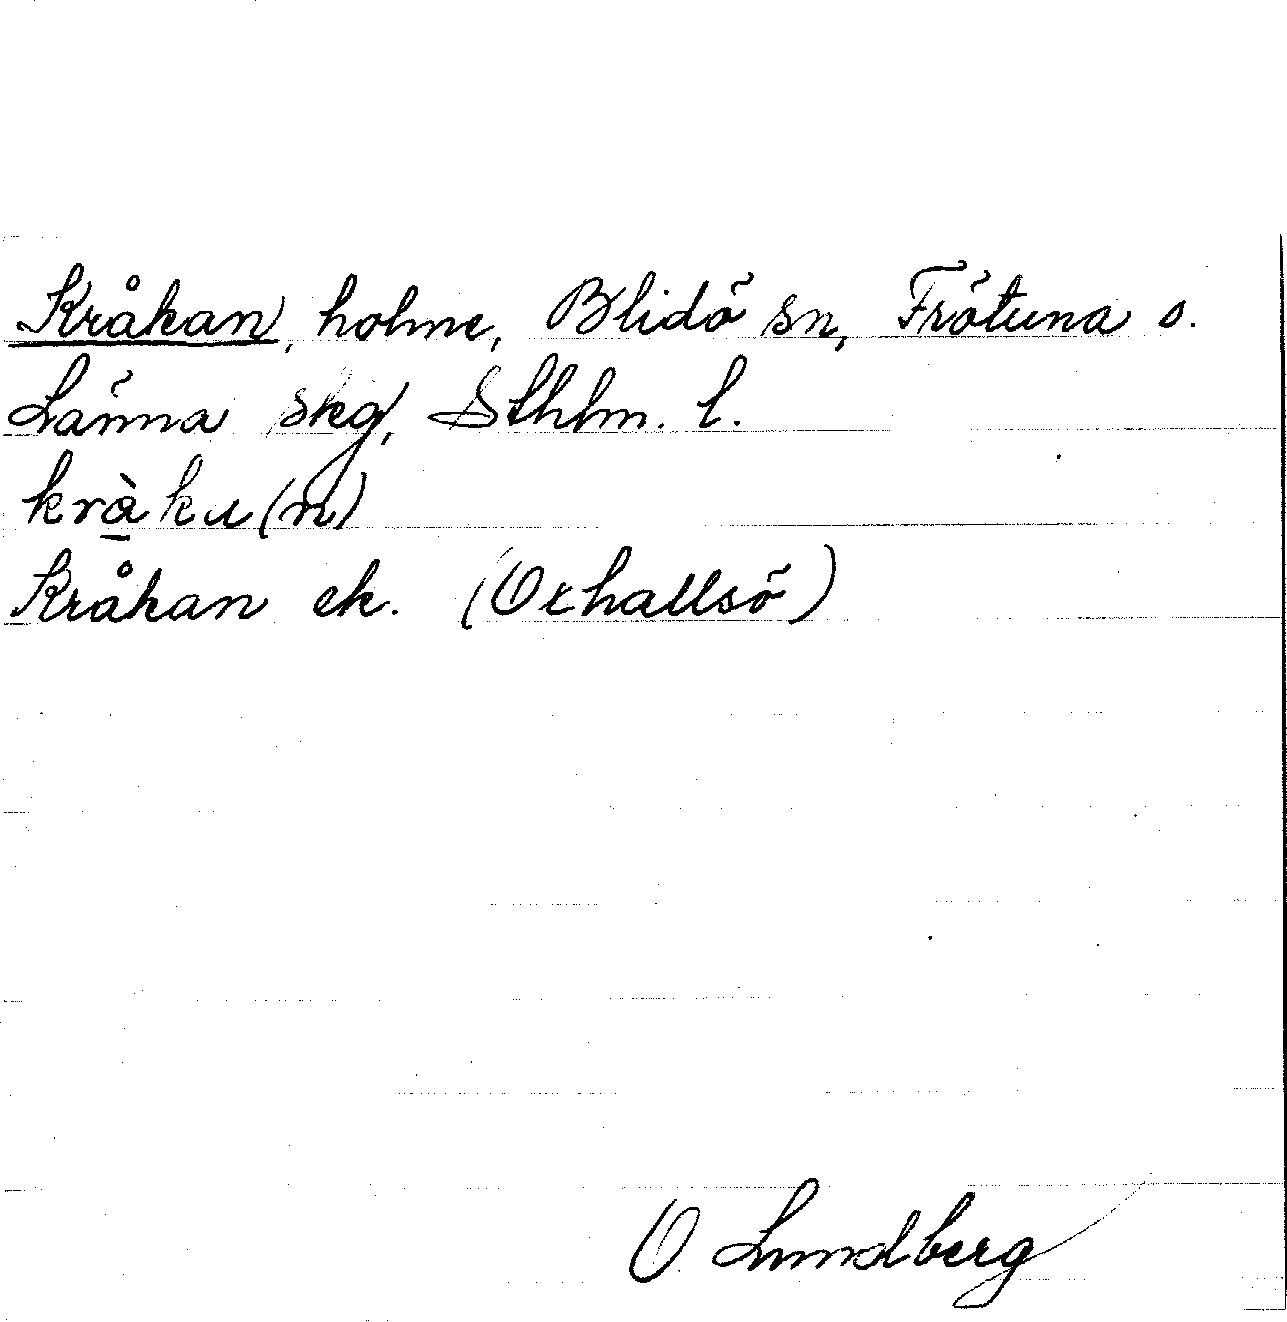 Kråkan, holme, Blidö sn, Frötuna o.
Länna skg, Sthlm. l.
kràku(n)
Kråkan ek. (Oxhallsö)
O Lundberg